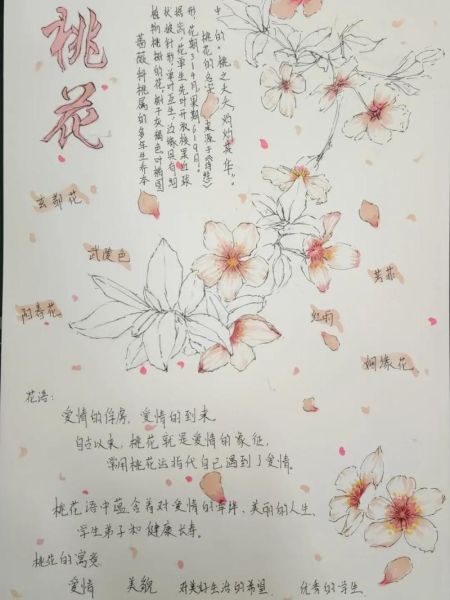 桃花
蔷薇科桃属的多年生乔本
植物桃树的花，树干灰褐色叶椭圆
状披针形，单叶互生，边缘具有细
花单生，先叶开放核果近球
形，花期3-4月，果期6-9月。
桃花的名字，来源于《诗经》
中的"桃之夭夭，灼灼其华"。
玄都花
武陵色
阳春花
红雨
芳菲
姻缘花
花语：
爱情的俘虏，爱情的到来
自古以来，桃花就是爱情的象征，
常用桃花运指代自己遇到了爱情。
桃花语中蕴含着对爱情的掌梓、美丽的人生，
学生弟子和健康长寿。
桃花的寓意
爱情 美貌 对美好生活的希望 优秀的学生